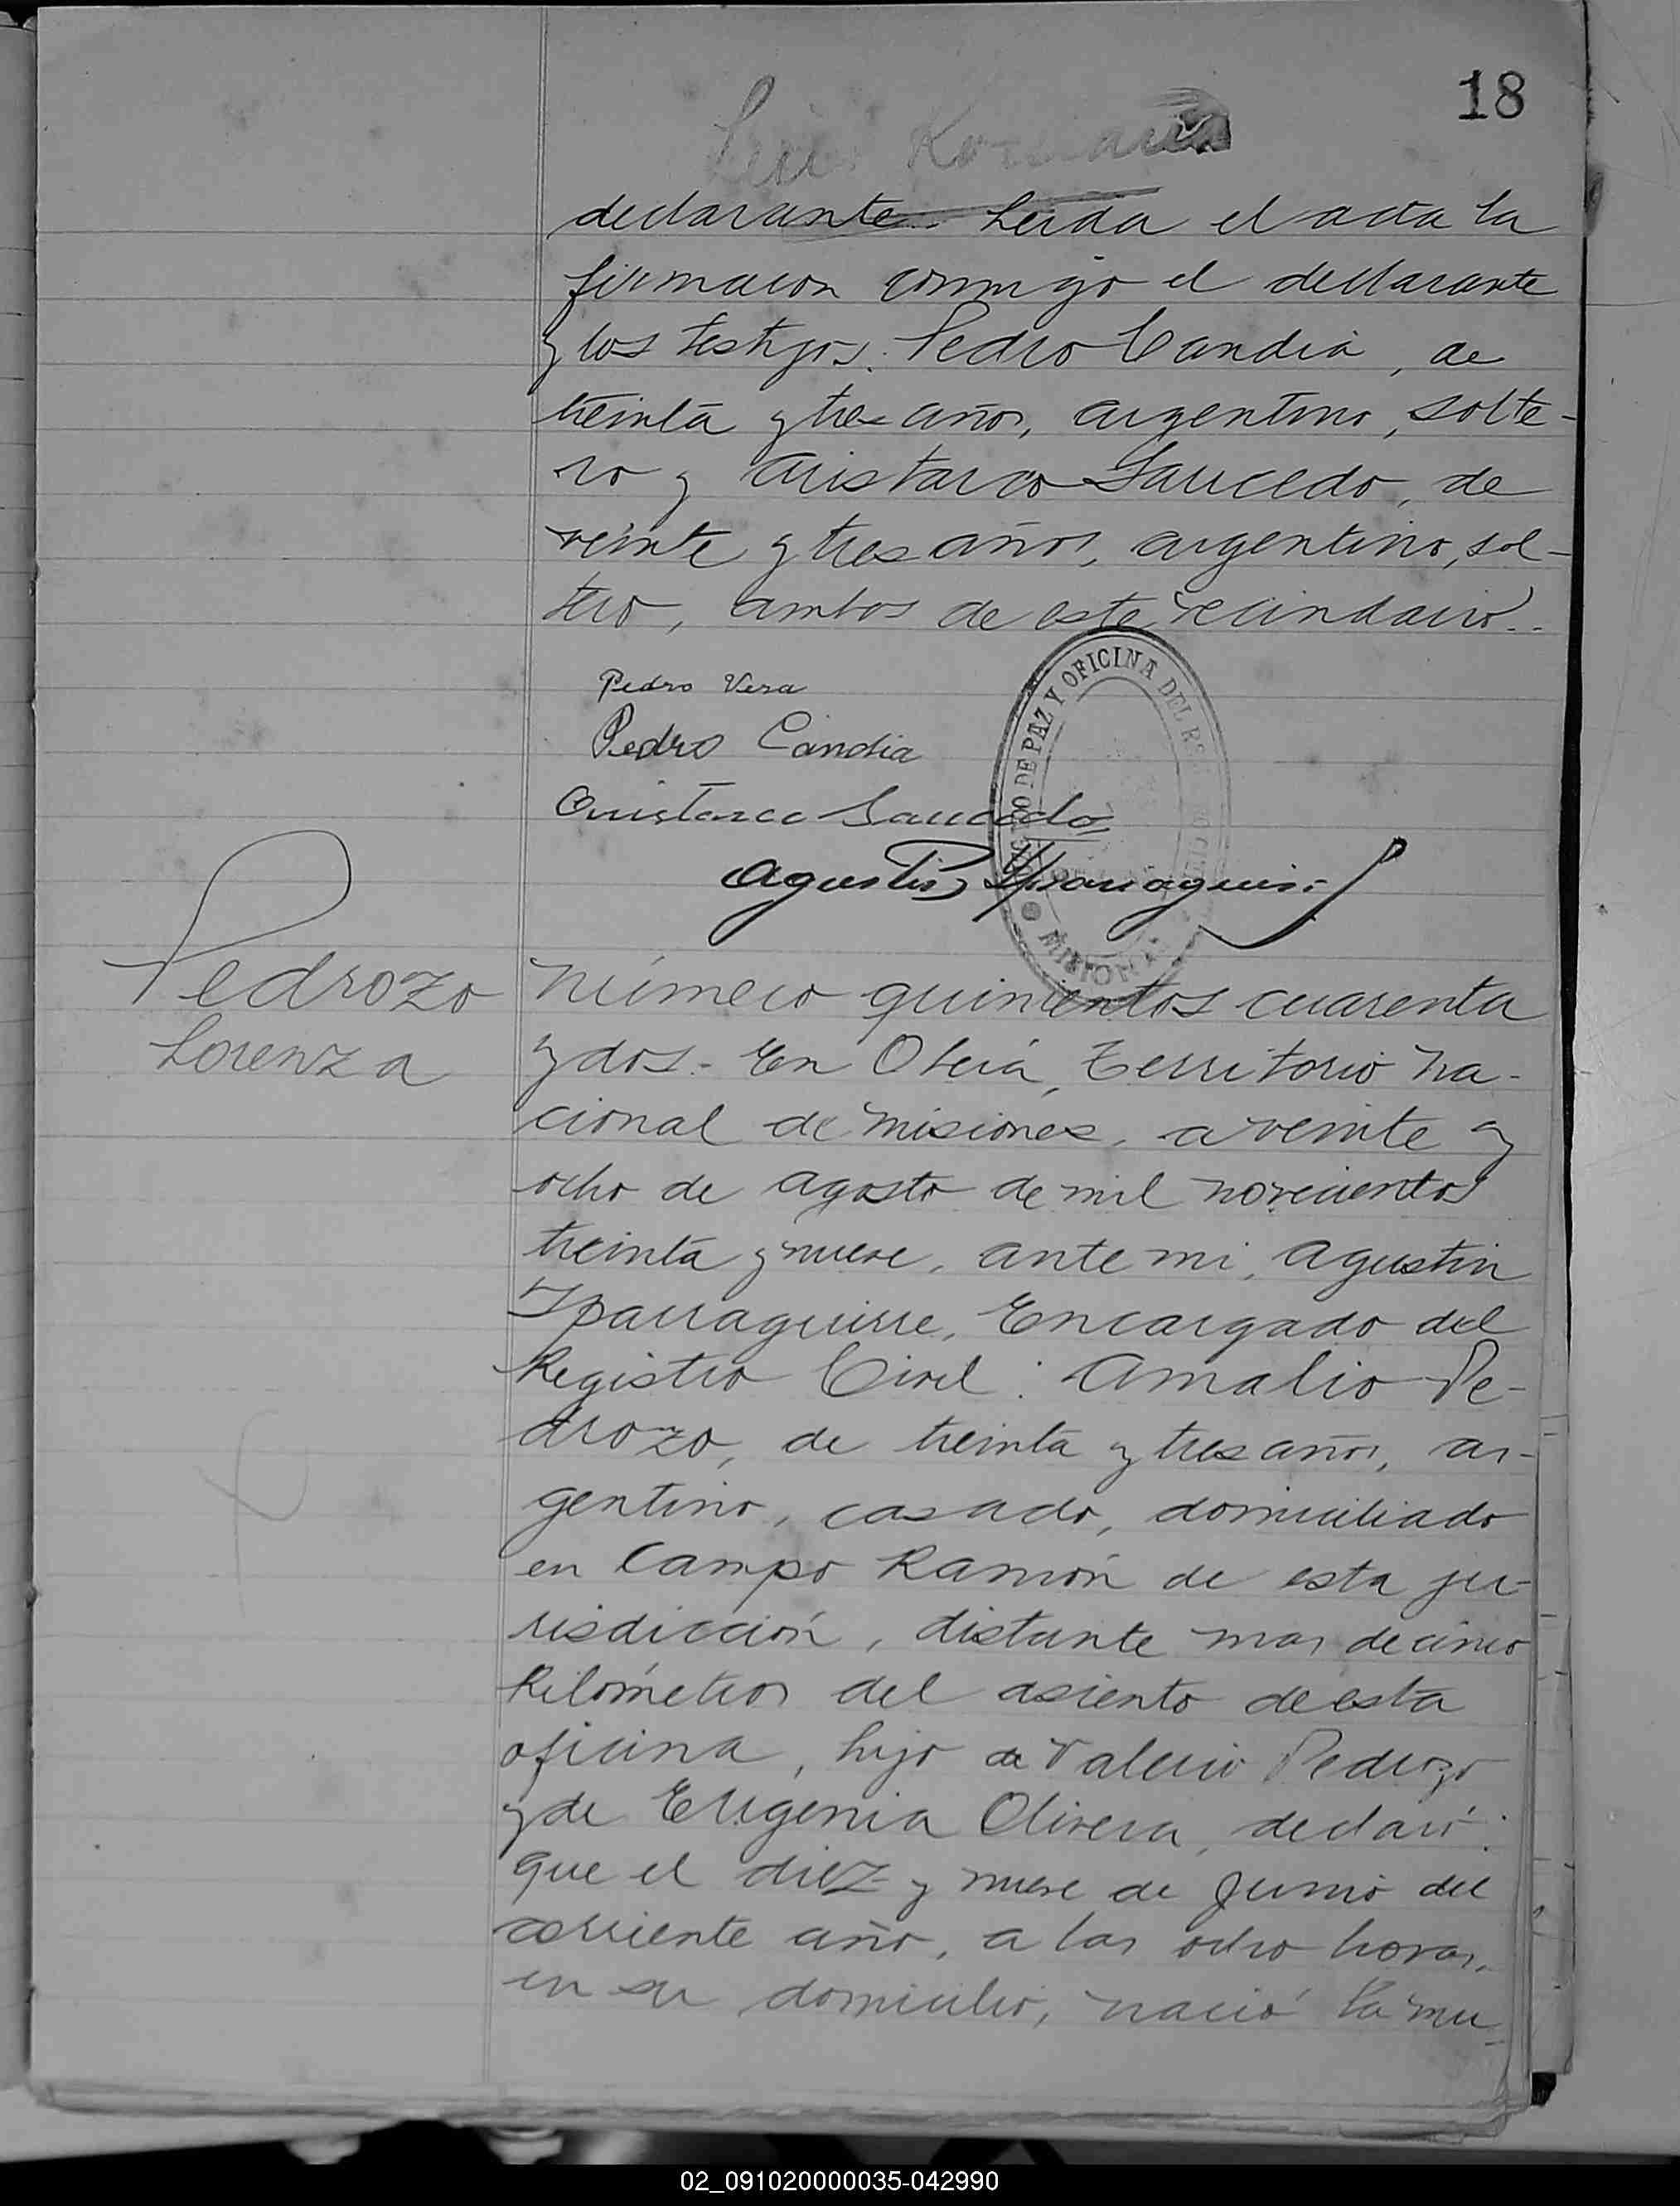 18
declarante. Leida el acta la
firmaron conmigo el declarante
y los testigos: Pedro Candia, de
treinta y tres años, argentino, solte-
ro y Aristarco Saucedo, de
veinte y tres años, argentino, sol-
tero, ambos de este vecindario..
Pedro Vera
Pedro Candia
Aristarco Saucedo
Agustin Yparraguirre
DE PAZ Y OFICINA DEL
Pedrozo
Lorenza
Número quinientos cuarenta
y dos.- En Oberá, Territorio Na-
cional de Misiones, a veinte y
ocho de agosto de mil novecientos
treinta y nueve, ante mi, Agustin
Yparraguirre, Encargado del
Registro Civil: Amalio Pe-
drozo, de treinta y tres años, ar-
gentino, casado, domiciliado
en Campo Ramón de esta ju-
risdicción, distante mas de cinco
kilómetros del asiento de esta
oficina, hijo de Valerio Pedrozo
y de Eugenia Olivera, declaró:
que el diez y nueve de Junio del
corriente año, a las ocho horas,
en su domicilio, nació la mu-
02_091020000035-042990